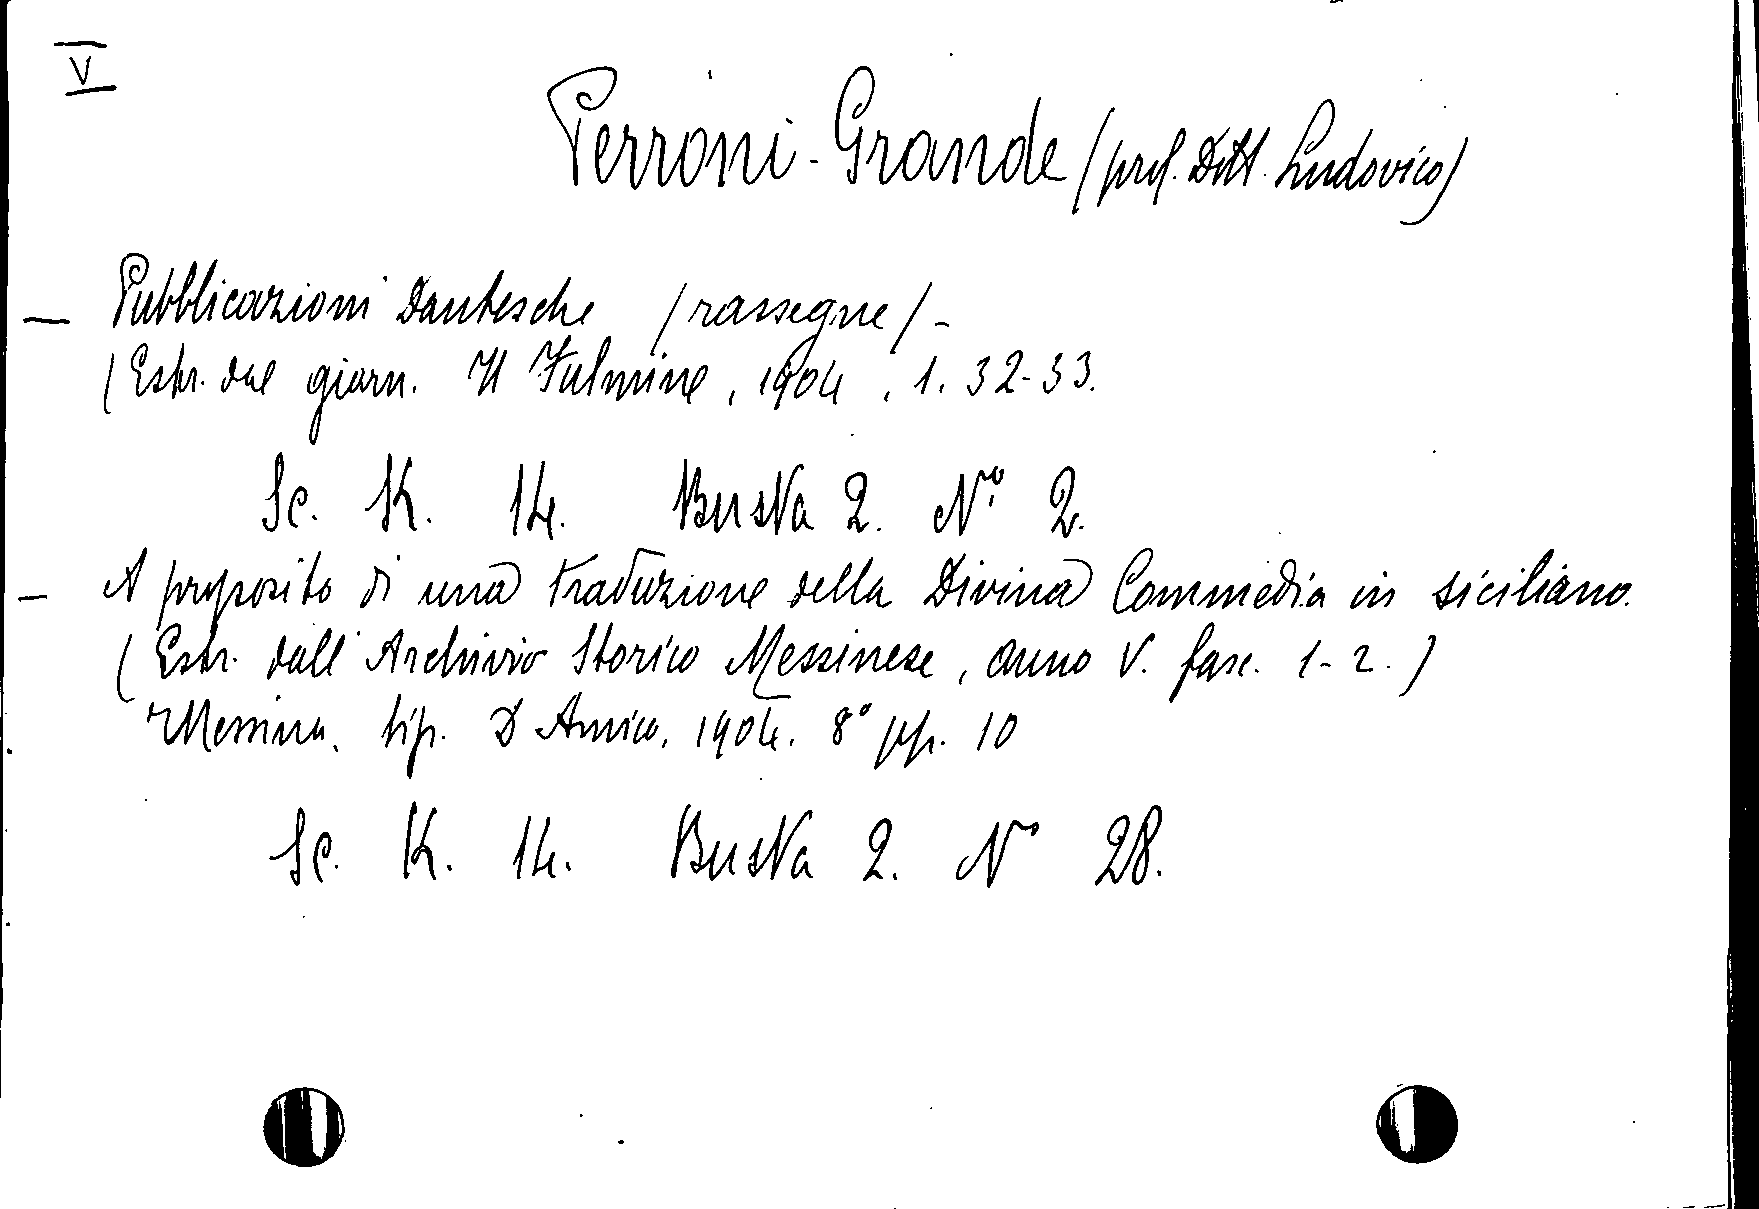 V
Perroni-Grande (prof. Dott. Ludovico)
— Pubblicazioni Dantesche (rassegne) -
(Estr. dal giorn. Il Fulmine, 1904, 1. 32-33.
Sc. K. 14. Busta 2. N.° 2.
— A proposito di una traduzione della Divina Commedia in siciliano.
(Estr. dall'Archivio Storico Messinese, anno V. fasc. 1-2.)
Messina, tip. D'Amico, 1904. 8° pp. 10
Sc. K. 14. Busta 2. N° 28.